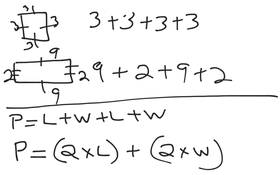 3
3 3 3+3+3+3
3
9
2 2 9+2+9+2
9
P=L+W+L+W
P=(2xL)+(2xW)